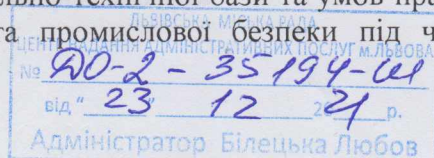 ально техні ної бази та умов пра
та промислової безпеки під ч
ЛЬВІВСЬКА МІСЬКА РАДА
ЦЕНТР НАДАННЯ АДМІНІСТРАТИВНИХ ПОСЛУГ м.ЛЬВОВА
№ ДО-2-35194-Ш
від "23" 12 2021 р.
Адміністратор Білецька Любов